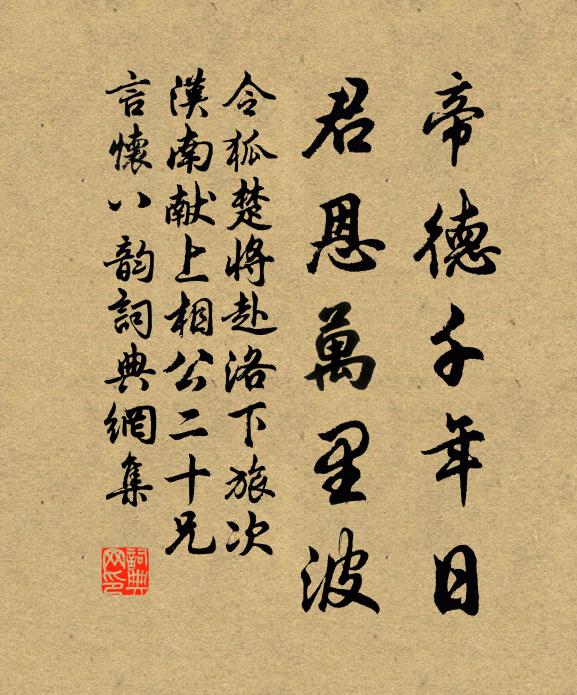 帝德千年日
君恩萬里波
令狐楚將赴洛下旅次
漢南献上相公二十兄
言懷八韵詞典網集
詞典网印